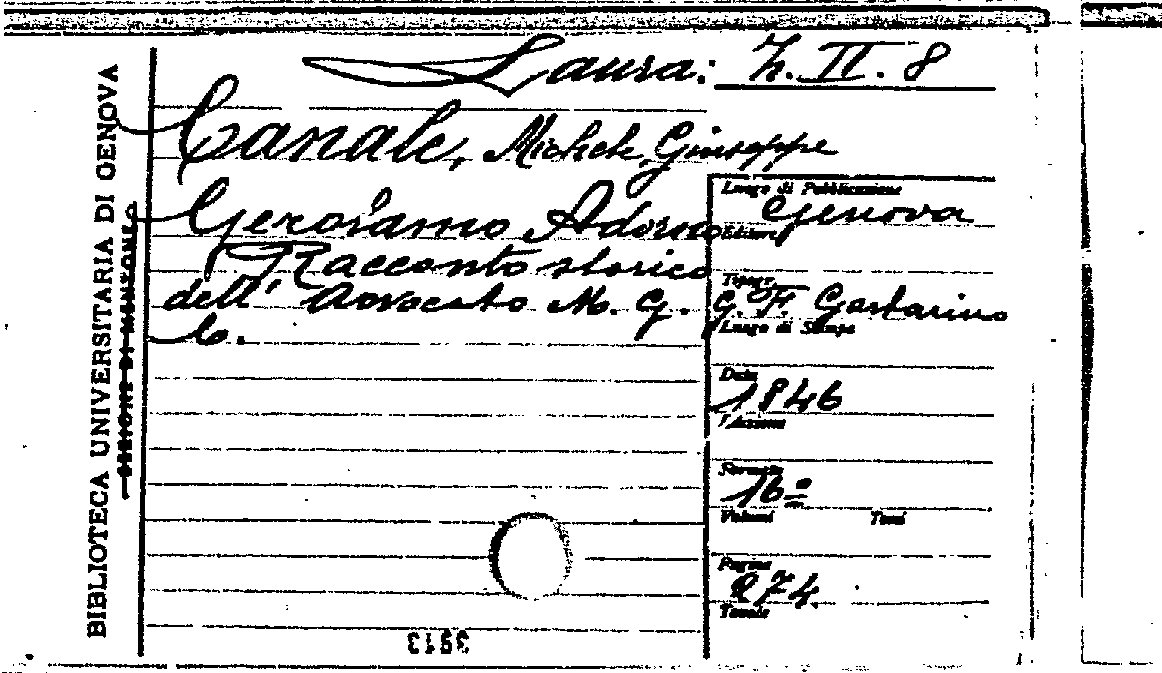 Laura: Z. II. 8
Canale, Michele Giuseppe
Gerolamo Adorno
Racconto storico
dell' Avvocato M. G.
C.
Luogo di Pubblicazione
Genova
Editore
Tipogr.
G. F. Gastarino
Luogo di Stampa
Data
1846
Edizione
Formato
16º
Volumi Tomi
Pagine
274
Tavole
BIBLIOTECA UNIVERSITARIA DI GENOVA
3913